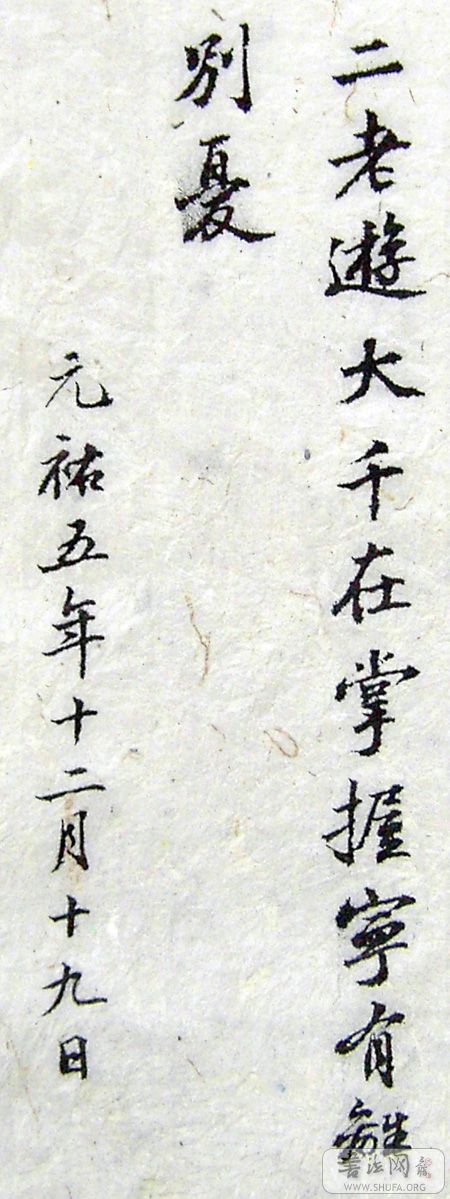 二老遊大千在掌握寧有離
別憂
元祐五年十二月十九日
書法网
WWW.SHUFA.ORG